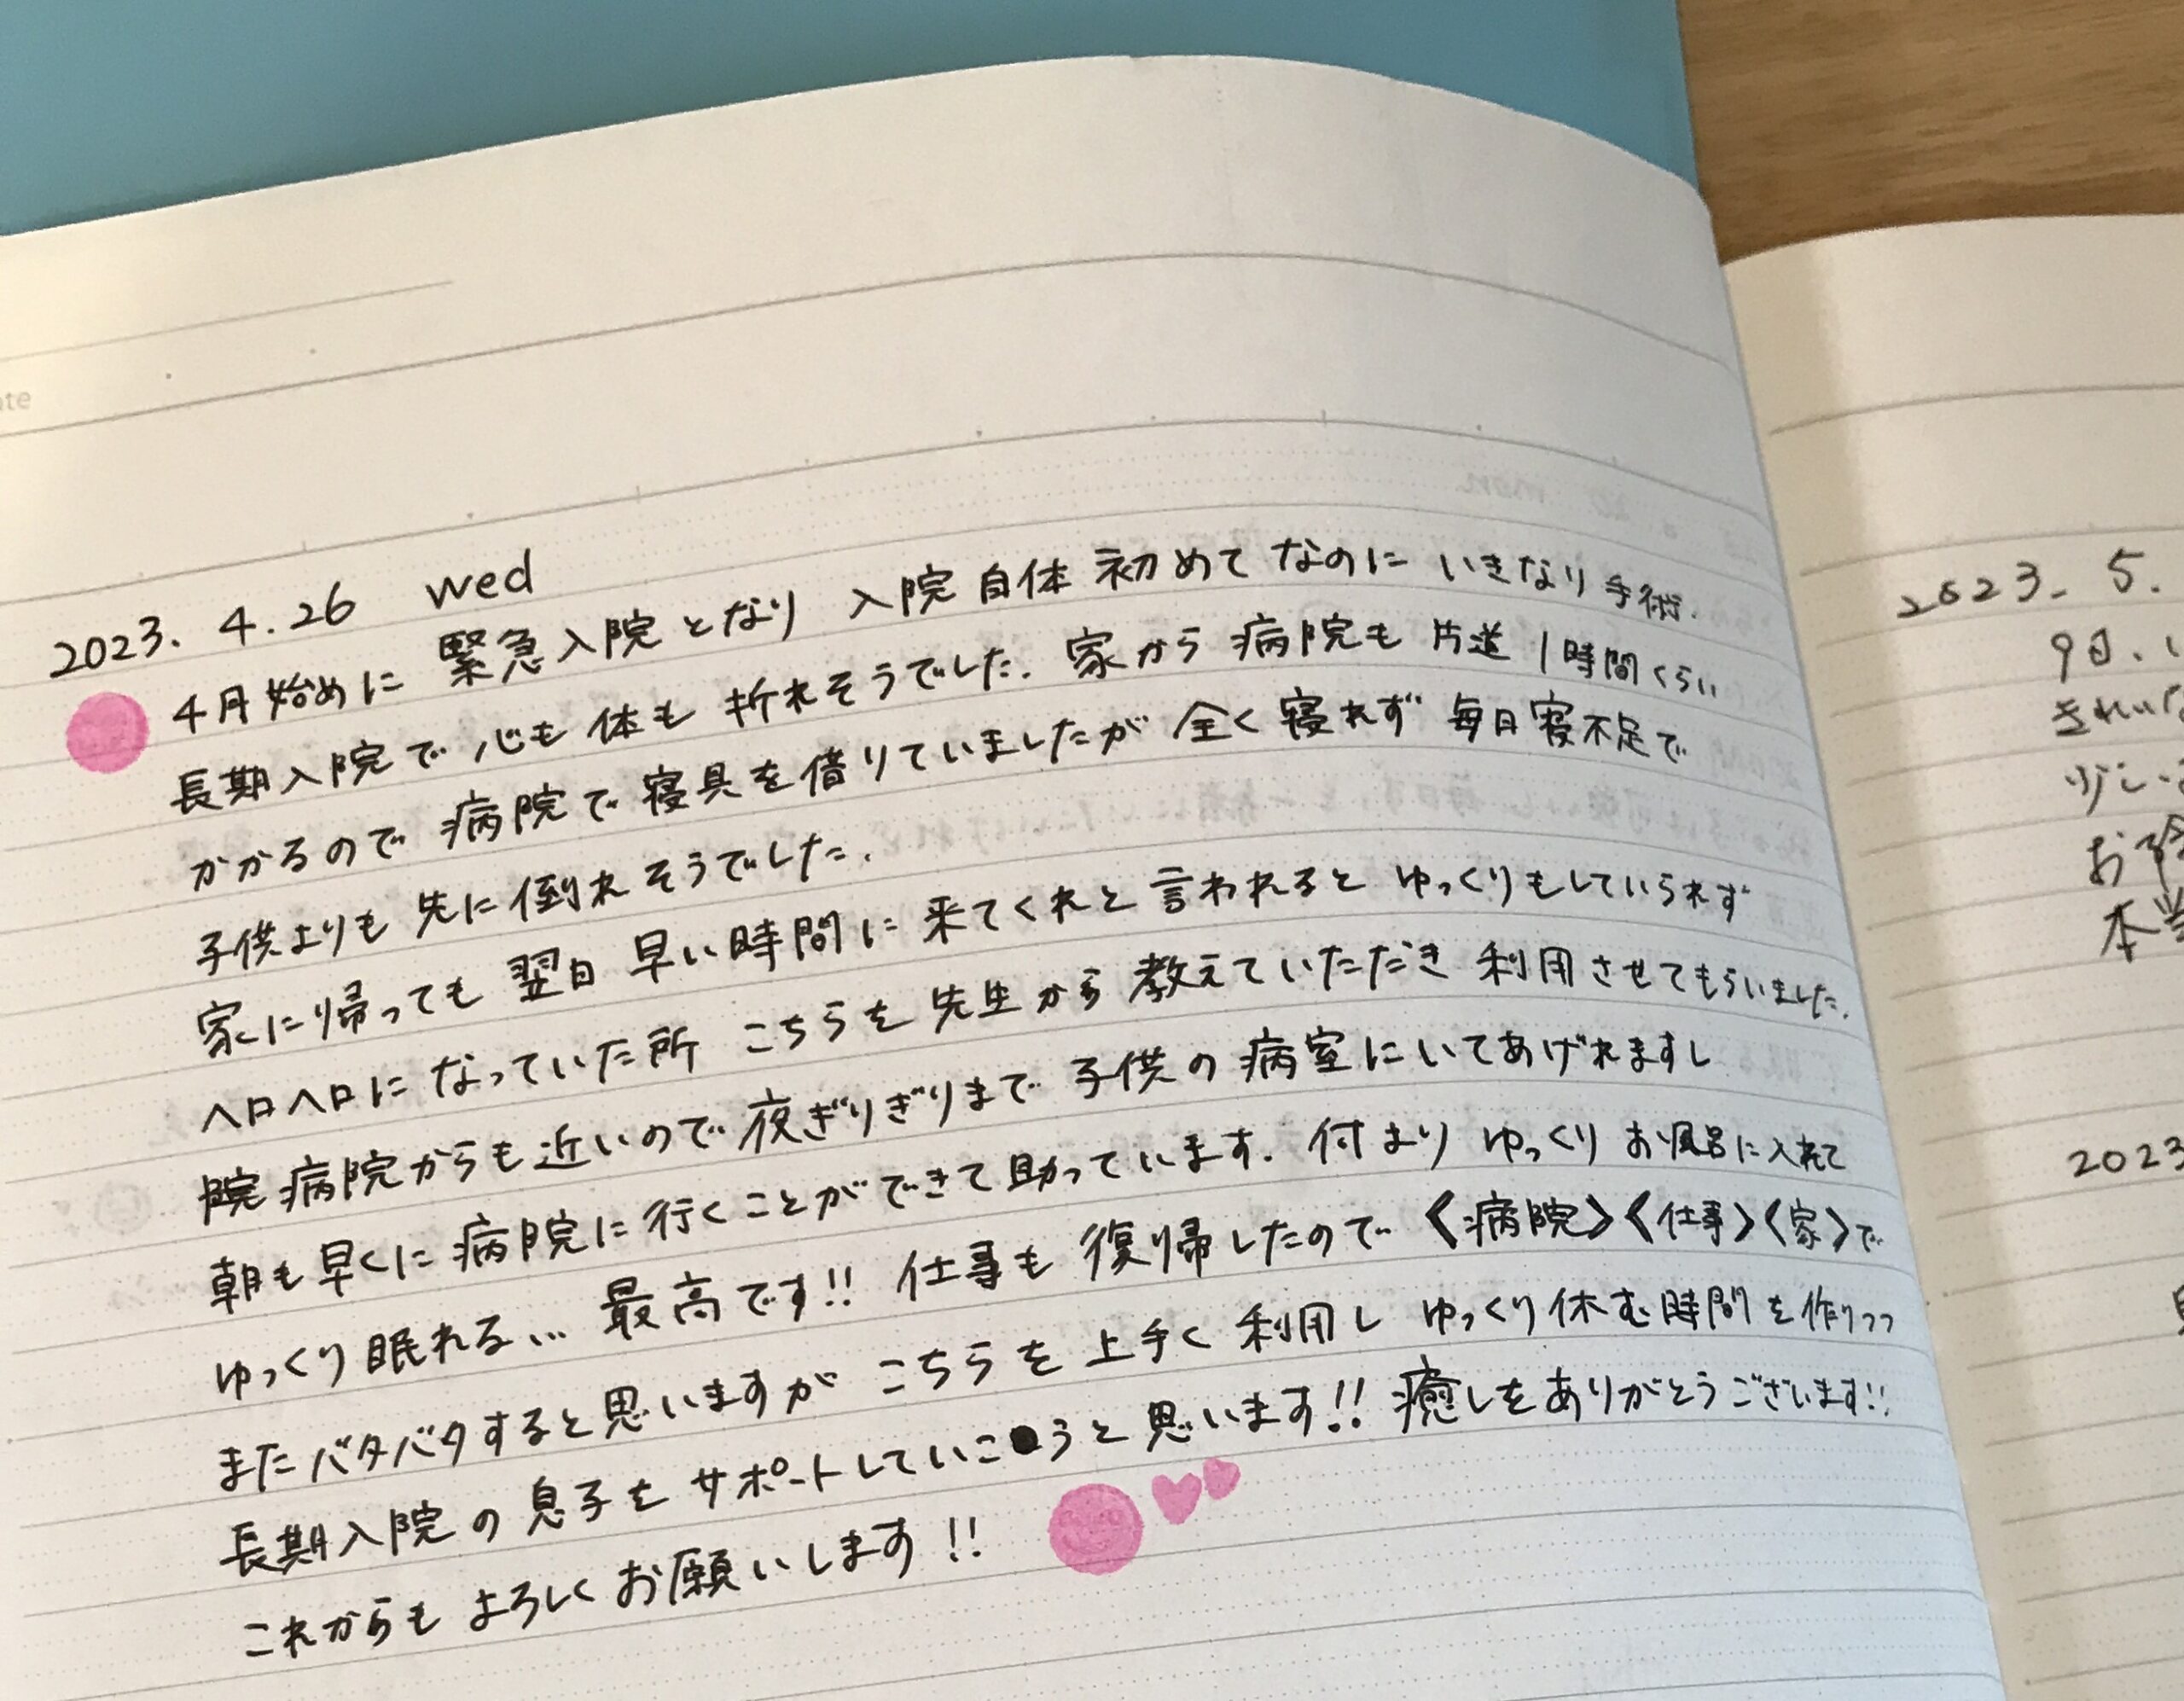 2023. 4. 26 wed
4月始めに 緊急入院となり 入院自体 初めてなのに いきなり手術.
長期入院で 心も体も 折れそうでした. 家から 病院も 片道 1時間くらい
かかるので 病院で寝具を借りていましたが 全く寝れず 毎日寝不足で
子供よりも 先に倒れそうでした.
家に帰っても 翌日 早い時間に 来てくれと言われると ゆっくりもしていられず
ヘロヘロになっていた所 こちらを先生から教えていただき 利用させてもらいました.
院病院からも近いので 夜ぎりぎりまで 子供の病室にいてあげれますし
朝も早くに病院に行くことができて助っています. 付まり ゆっくりお風呂に入れて
ゆっくり眠れる… 最高です!! 仕事も復帰したので 〈病院〉〈仕事〉〈家〉で
またバタバタすると思いますが こちらを上手く利用し ゆっくり休む時間を作りつつ
長期入院の息子をサポートしていこうと思います!! 癒しをありがとうございます!!
これからも よろしくお願いします!!
ate
2023. 5.
9日、
きれい
少し
お
本当
2023